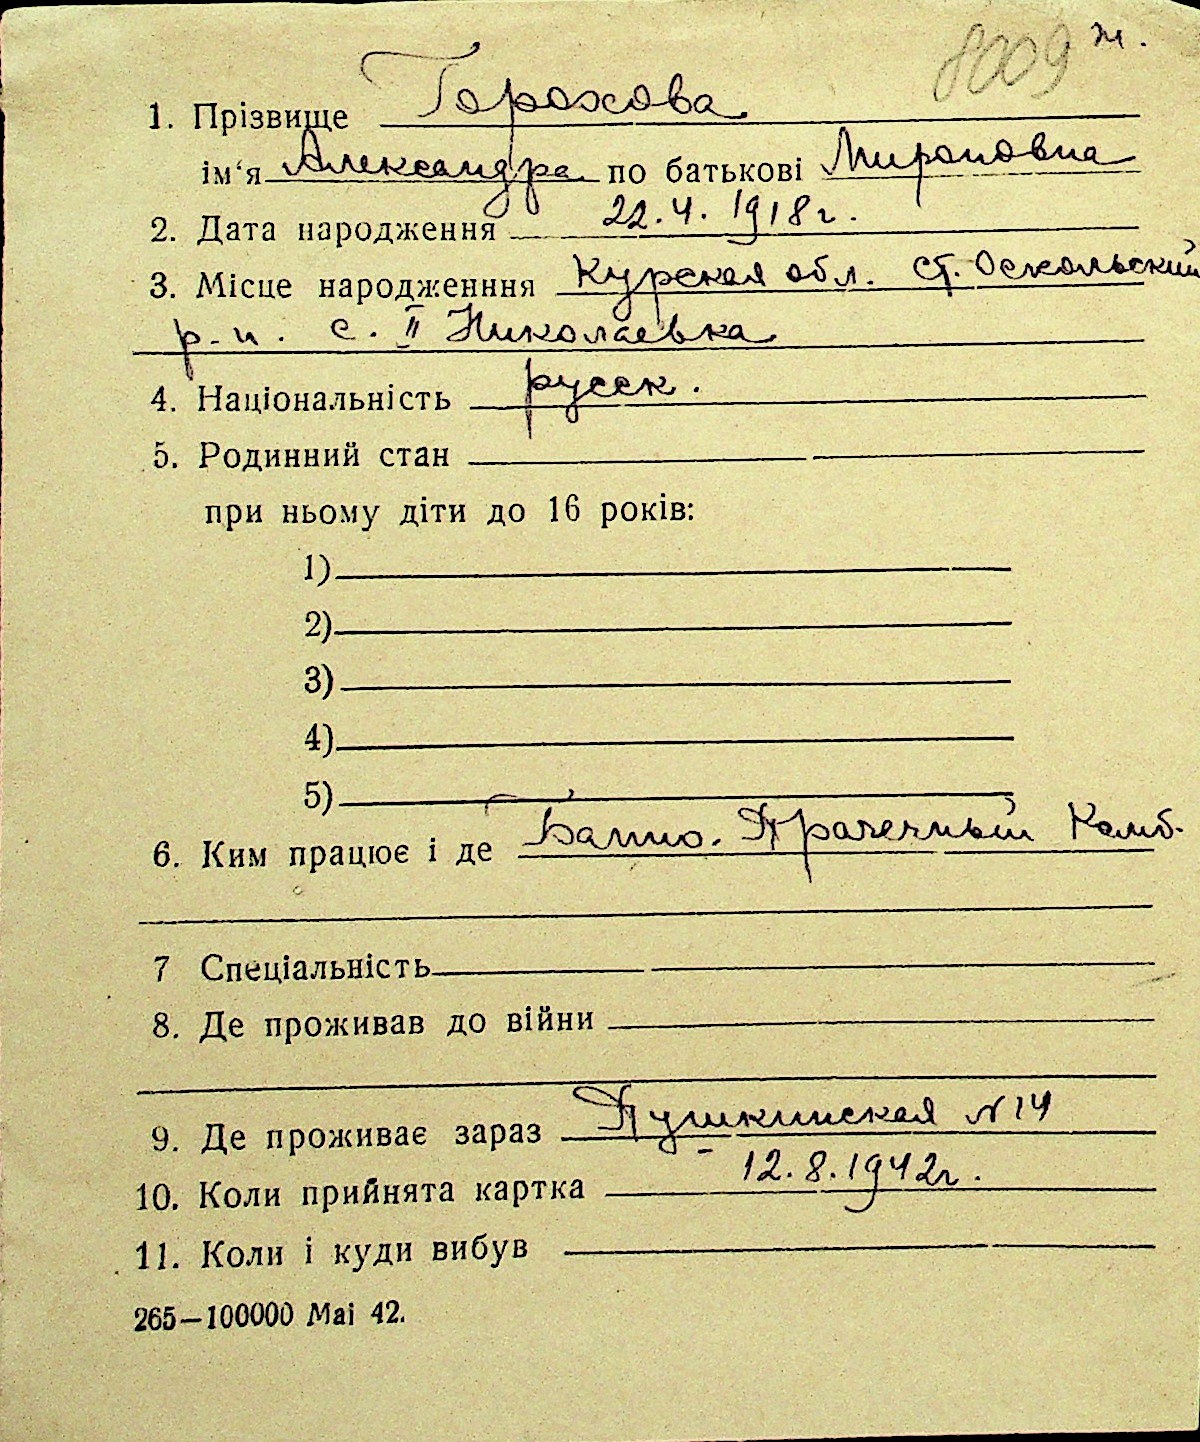 8009 ж.
1. Прізвище Горохова
ім'я Александра по батькові Мироновна
2. Дата народження 22.4.1918г.
3. Місце народженння Курская обл. Ст. Оскольский
р-н. с. II Николаевка
4. Національність русск.
5. Родинний стан
при ньому діти до 16 років:
1)
2)
3)
4)
5)
6. Ким працює і де Банно. Прачечный Комб.
7 Спеціальність
8. Де проживав до війни
9. Де проживає зараз Пушкинская N 14
10. Коли прийнята картка 12.8.1942г.
11. Коли і куди вибув
265—100000 Mai 42.